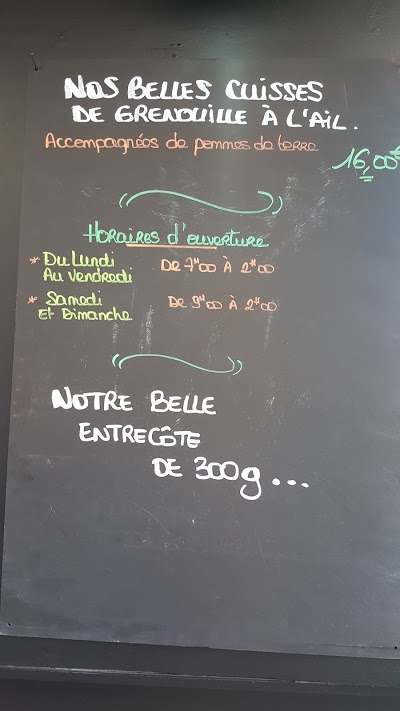 NOS BELLES CUISSES
DE GRENOUILLE À L'AIL.
Accompagnées de pommes de terre
16,00€
HORAIRES d'OUVERTURE
* DU LUNDI DE 7H00 À 2H00
AU VENDREDI
* SAMEDI DE 9H00 À 2H00
ET DIMANCHE
NOTRE BELLE
ENTRECÔTE
DE 300g...